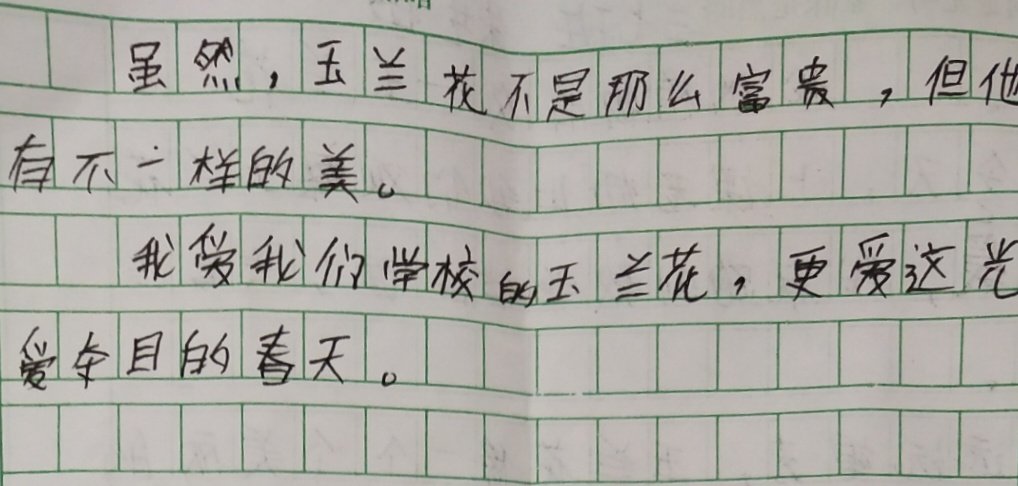 虽然，玉兰花不是那么富贵，但他
有不一样的美。
我爱我们学校的玉兰花，更爱这光
爱夺目的春天。